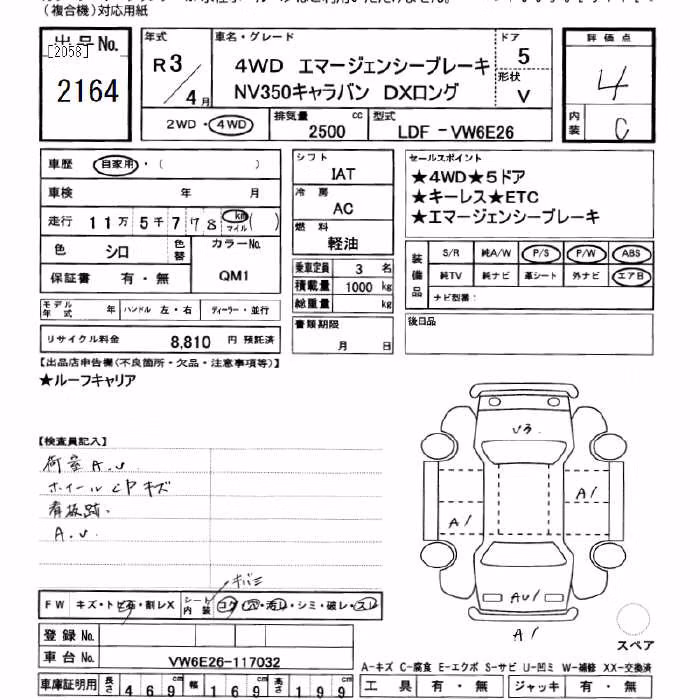 （複合機）対応用紙
出品No.
[2058]
2164
年式
R3/4月
車名・グレード
4WD エマージェンシーブレーキ
NV350キャラバン DXロング
ドア
5
形状
V
評価点
4
内装
C
2WD・4WD
排気量
2500 cc
型式
LDF-VW6E26
車歴 自家用・( )
車検 年 月
走行 11万5千778 km マイル ( )
色 シロ 色替
カラーNo.
QM1
保証書 有・無
モデル年式 年 ハンドル 左・右 ディーラー・並行
リサイクル料金 8,810 円 預託済
シフト
IAT
冷房
AC
燃料
軽油
乗車定員 3 名
積載量 1000 kg
総重量 kg
書類期限
月 日
セールスポイント
★4WD★5ドア
★キーレス★ETC
★エマージェンシーブレーキ
装備品
S/R 純A/W P/S P/W ABS
純TV 純ナビ 革シート 外ナビ エアB
ナビ型番：
後日品
【出品店申告欄(不良箇所・欠品・注意事項等)】
★ルーフキャリア
【検査員記入】
荷室 A.U
ホイール CP キズ
看板跡.
A.U.
キバミ
FW キズ・トビ石・割レX
シート内装 コゲ・穴・汚レ・シミ・破レ・スレ
登録No.
車台No. VW6E26-117032
車庫証明用 長さ 469cm 幅 169cm 高さ 199cm
U3
A1
A1
AU1
A1
スペア
A-キズ C-腐食 E-エクボ S-サビ U-凹ミ W-補修 XX-交換済
工具 有・無 ジャッキ 有・無